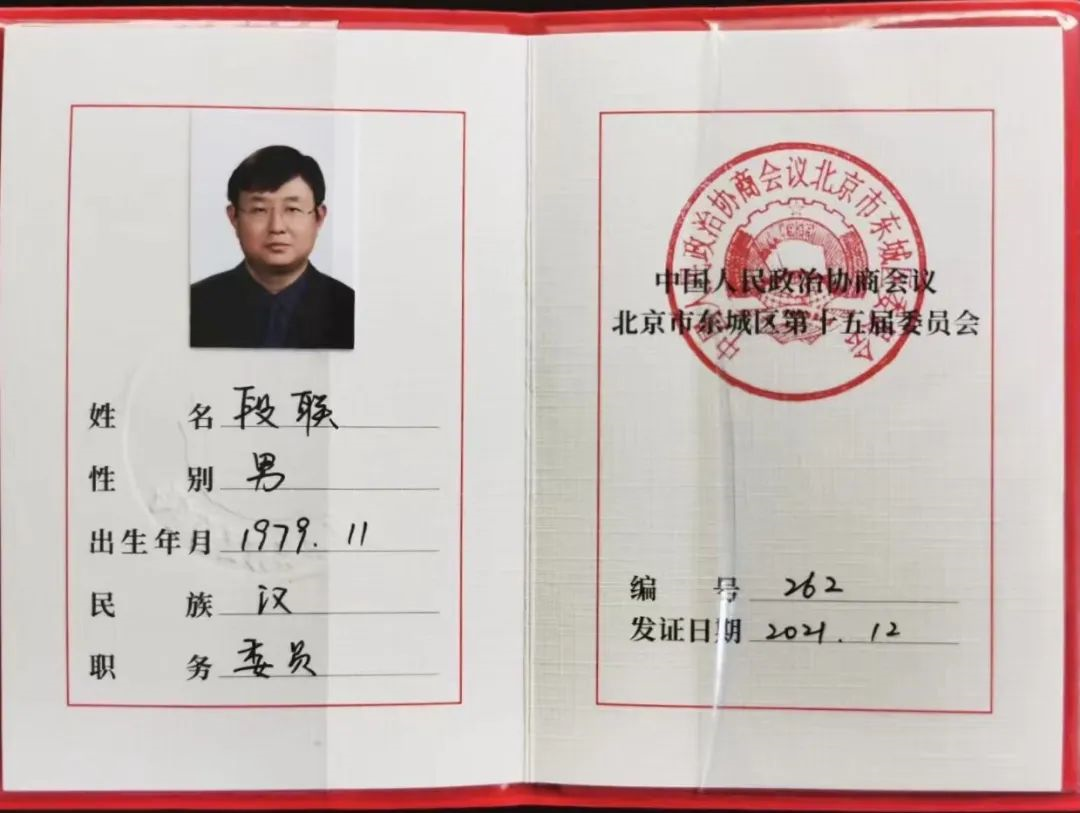 姓名 段联
性别 男
出生年月 1979.11
民族 汉
职务 委员
中国人民政治协商会议北京市东城区委员会
中国人民政治协商会议
北京市东城区第十五届委员会
编号 262
发证日期 2021.12